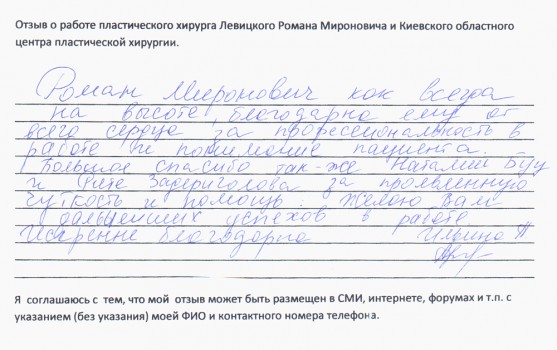 Отзыв о работе пластического хирурга Левицкого Романа Мироновича и Киевского областного
центра пластической хирургии.
Роман Миронович как всегда
на высоте, благодарна ему от
всего сердца за професиональность в
работе и понимание пациента.
Большое спасибо так-же Наталии Буу
и Рите Задериголова за проявленную
чуткость и помощь. Желаю Вам
дальнейших успехов в работе
Искренне благодарна Ильина
Я соглашаюсь с тем, что мой отзыв может быть размещен в СМИ, интернете, форумах и т.п. с
указанием (без указания) моей ФИО и контактного номера телефона.